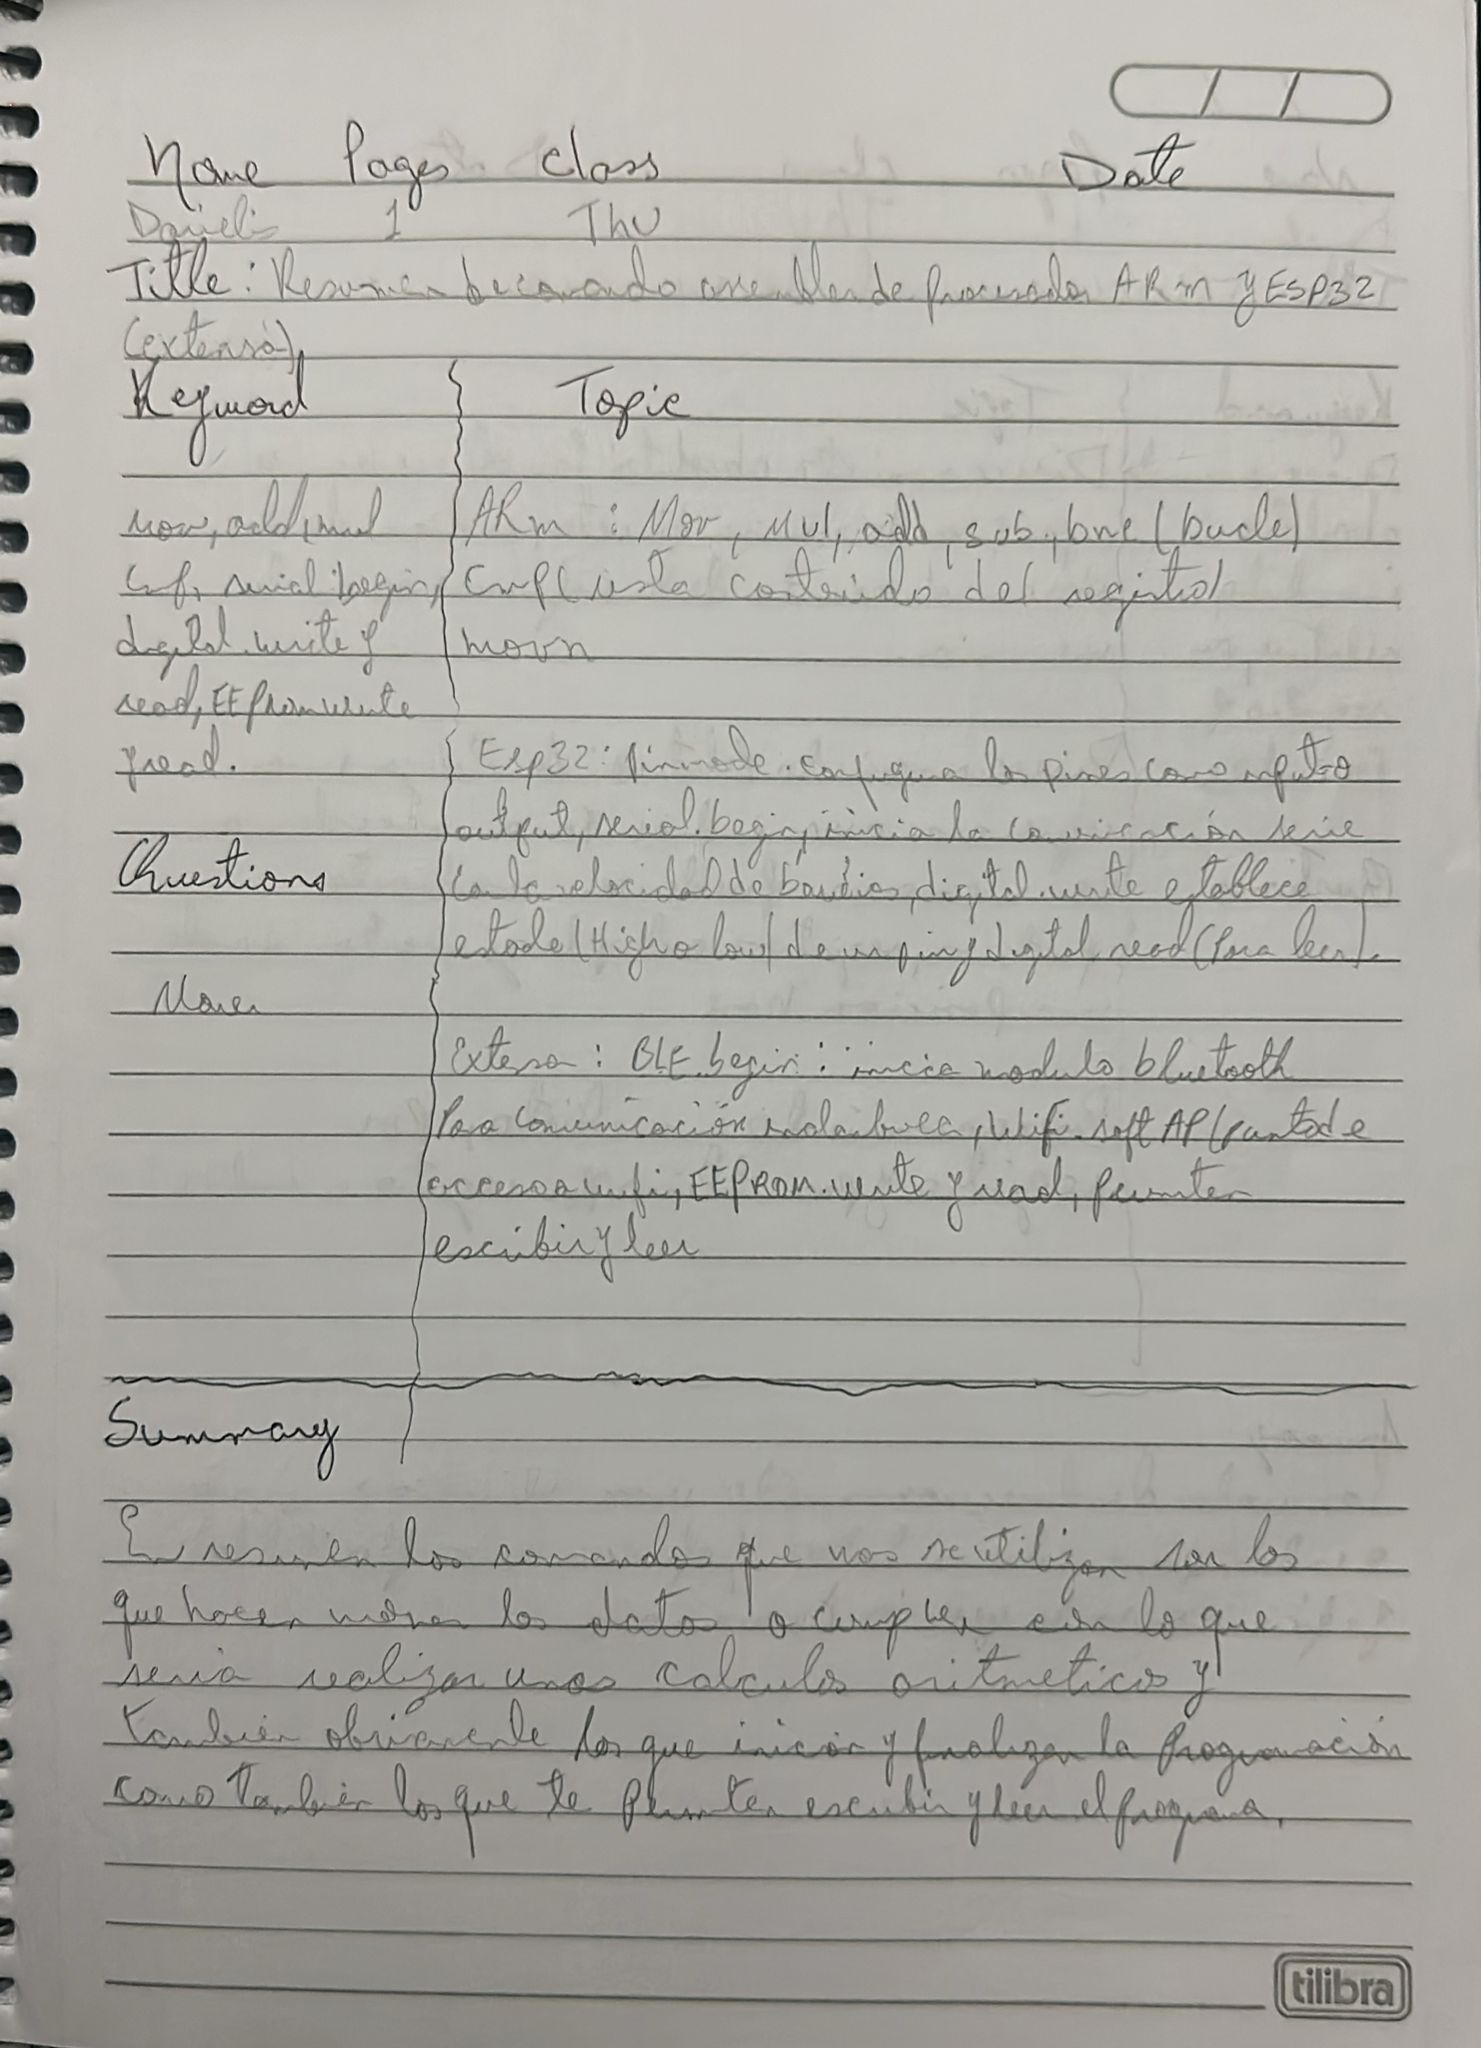 Name Pages Class Date
1 Thu
Title: Resumen de comando assembler de procesador ARm y ESP32
(extenso)
Keyword Topic
mov, add, mul ARm : Mov, Mul, add, sub, bne (bucle)
serial.begin, Cmp( resta contenido del registro)
digital.write y movn
read, EEprom write
y read. Esp32: pinmode. configura los pines como input o
output, serial.begin, inicia la comunicación serie
Questions con la velocidad de baudios, digital.write establece
estado (High o low) de un pin y digital.read (Para leer).
Extenso : BLE.begin : inicia modulo bluetooth
Para comunicación inalambrica, Wifi.soft AP (punto de
acceso a wifi, EEPROM.write y read, permiten
escribir y leer
Summary
En resumen los comandos que mas se utilizan son los
que hacen mover los datos o cumplen con lo que
seria realizar unos calculos aritmeticos y
también obviamente los que inician y finalizan la Programación
como también los que te Permiten escribir y leer el programa.
tilibra